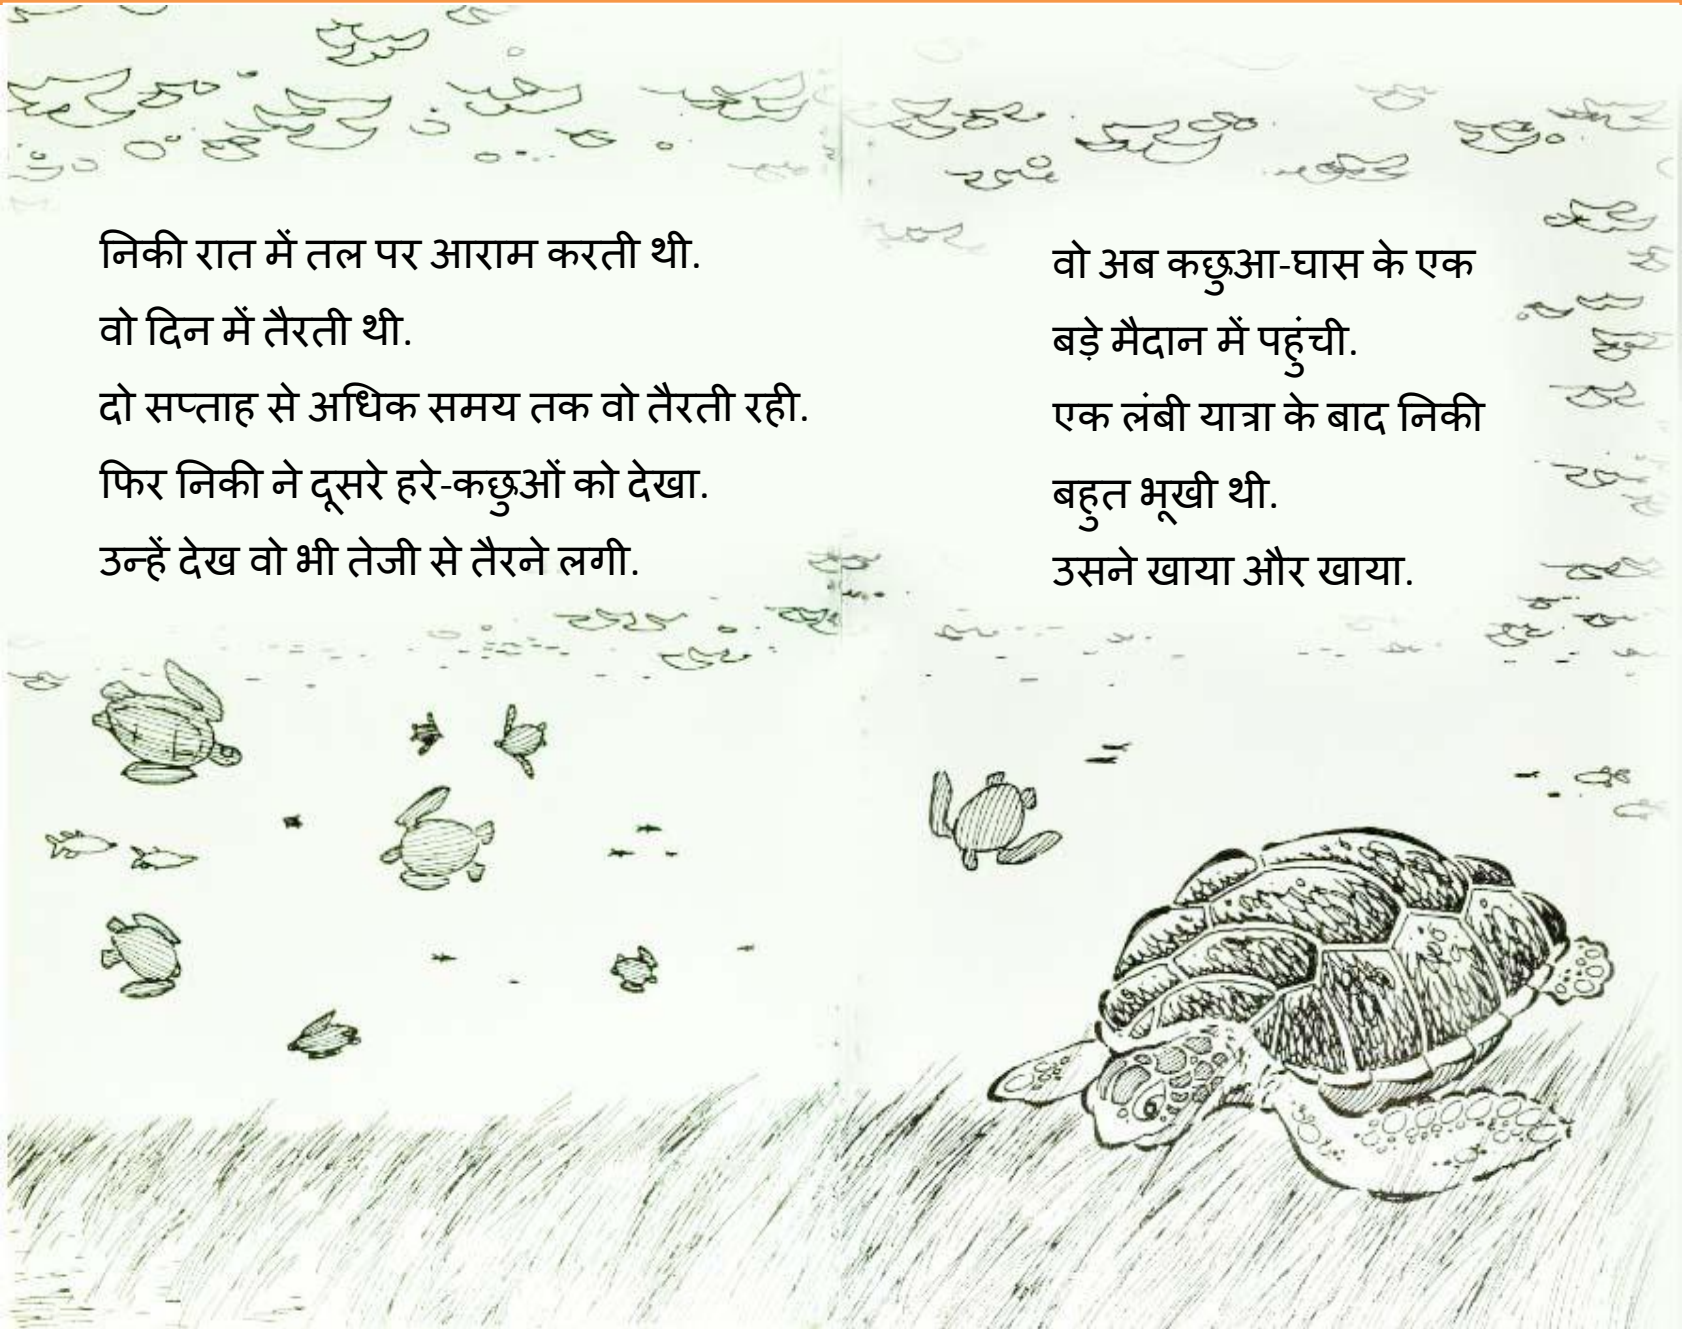 निकी रात में तल पर आराम करती थी.
वो दिन में तैरती थी.
दो सप्ताह से अधिक समय तक वो तैरती रही.
फिर निकी ने दूसरे हरे-कछुओं को देखा.
उन्हें देख वो भी तेजी से तैरने लगी.
वो अब कछुआ-घास के एक
बड़े मैदान में पहुंची.
एक लंबी यात्रा के बाद निकी
बहुत भूखी थी.
उसने खाया और खाया.